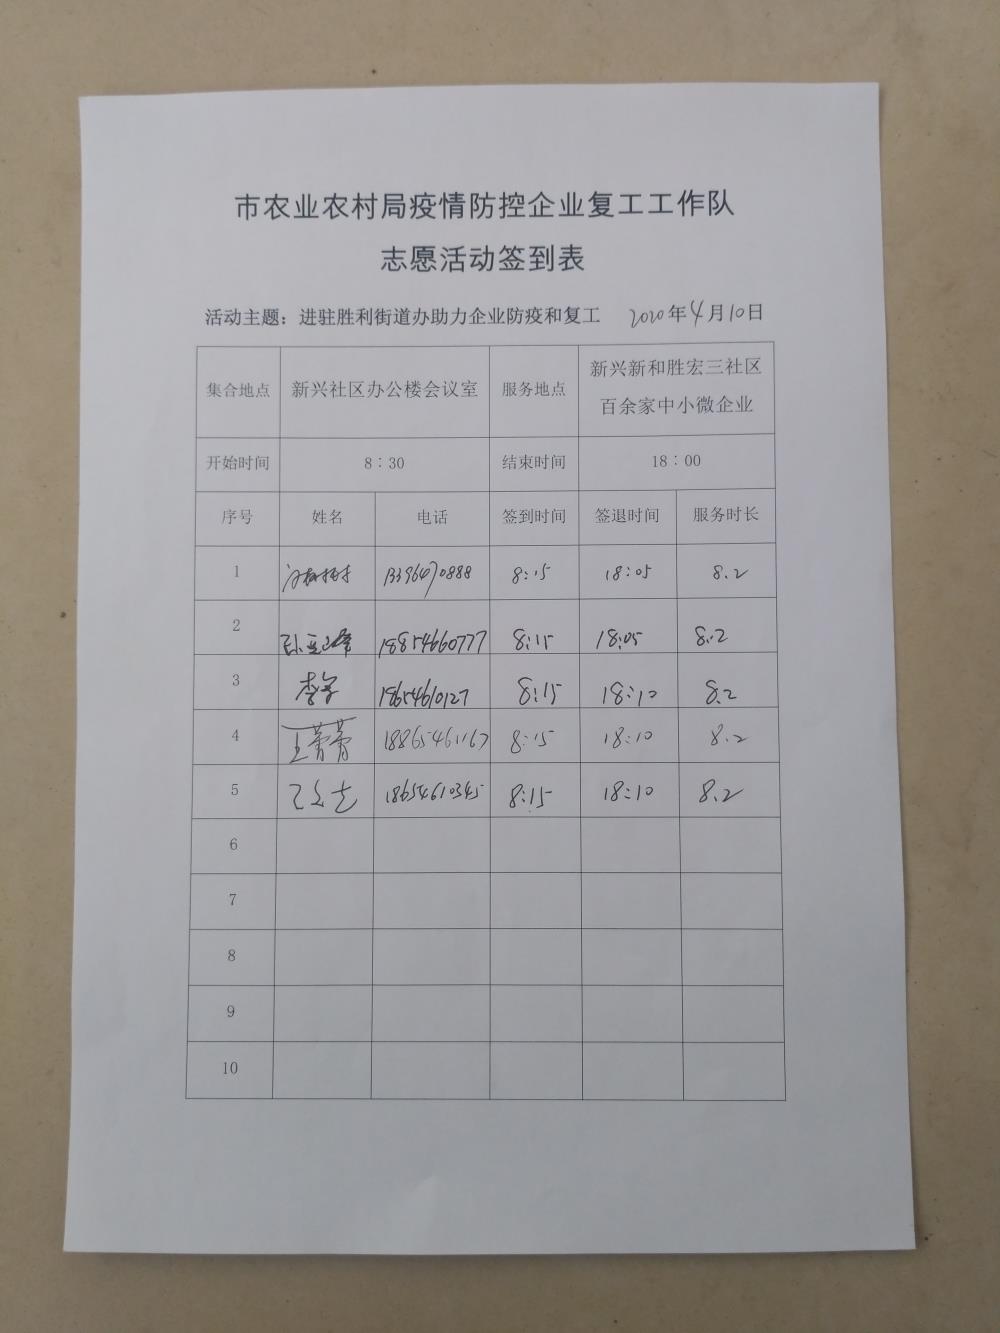 市农业农村局疫情防控企业复工工作队
志愿活动签到表
活动主题：进驻胜利街道办助力企业防疫和复工 2020年4月10日
集合地点 新兴社区办公楼会议室 服务地点 新兴新和胜宏三社区
百余家中小微企业
开始时间 8：30 结束时间 18：00
序号 姓名 电话 签到时间 签退时间 服务时长
1 13396470888 8:15 18:05 8.2
2 18854660777 8:15 18:05 8.2
3 18654610127 8:15 18:10 8.2
4 王菁菁 18865461167 8:15 18:10 8.2
5 18654610345 8:15 18:10 8.2
6
7
8
9
10